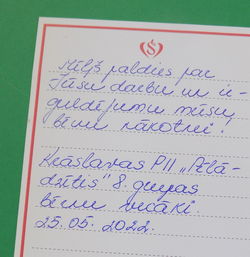 Mīļš paldies par
Jūsu darbu un ie-
guldījumu mūsu
bērnu nākotnei.
Krāslavas PII „Pīlā-
dzītis" 8. grupas
bērnu vecāki.
25.05.2022.